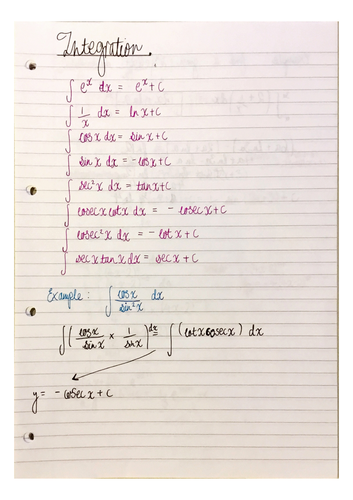 Integration.
∫ eˣ dx = eˣ + C
∫ 1/x dx = ln x + C
∫ cos x dx = sin x + C
∫ sin x dx = -cos x + C
∫ sec²x dx = tan x + C
∫ cosec x cot x dx = - cosec x + C
∫ cosec²x dx = - cot x + C
∫ sec x tan x dx = sec x + C
Example: ∫ cos x / sin²x dx
∫ ( cos x / sin x × 1 / sin x ) dx = ∫ (cot x cosec x) dx
y = - cosec x + C